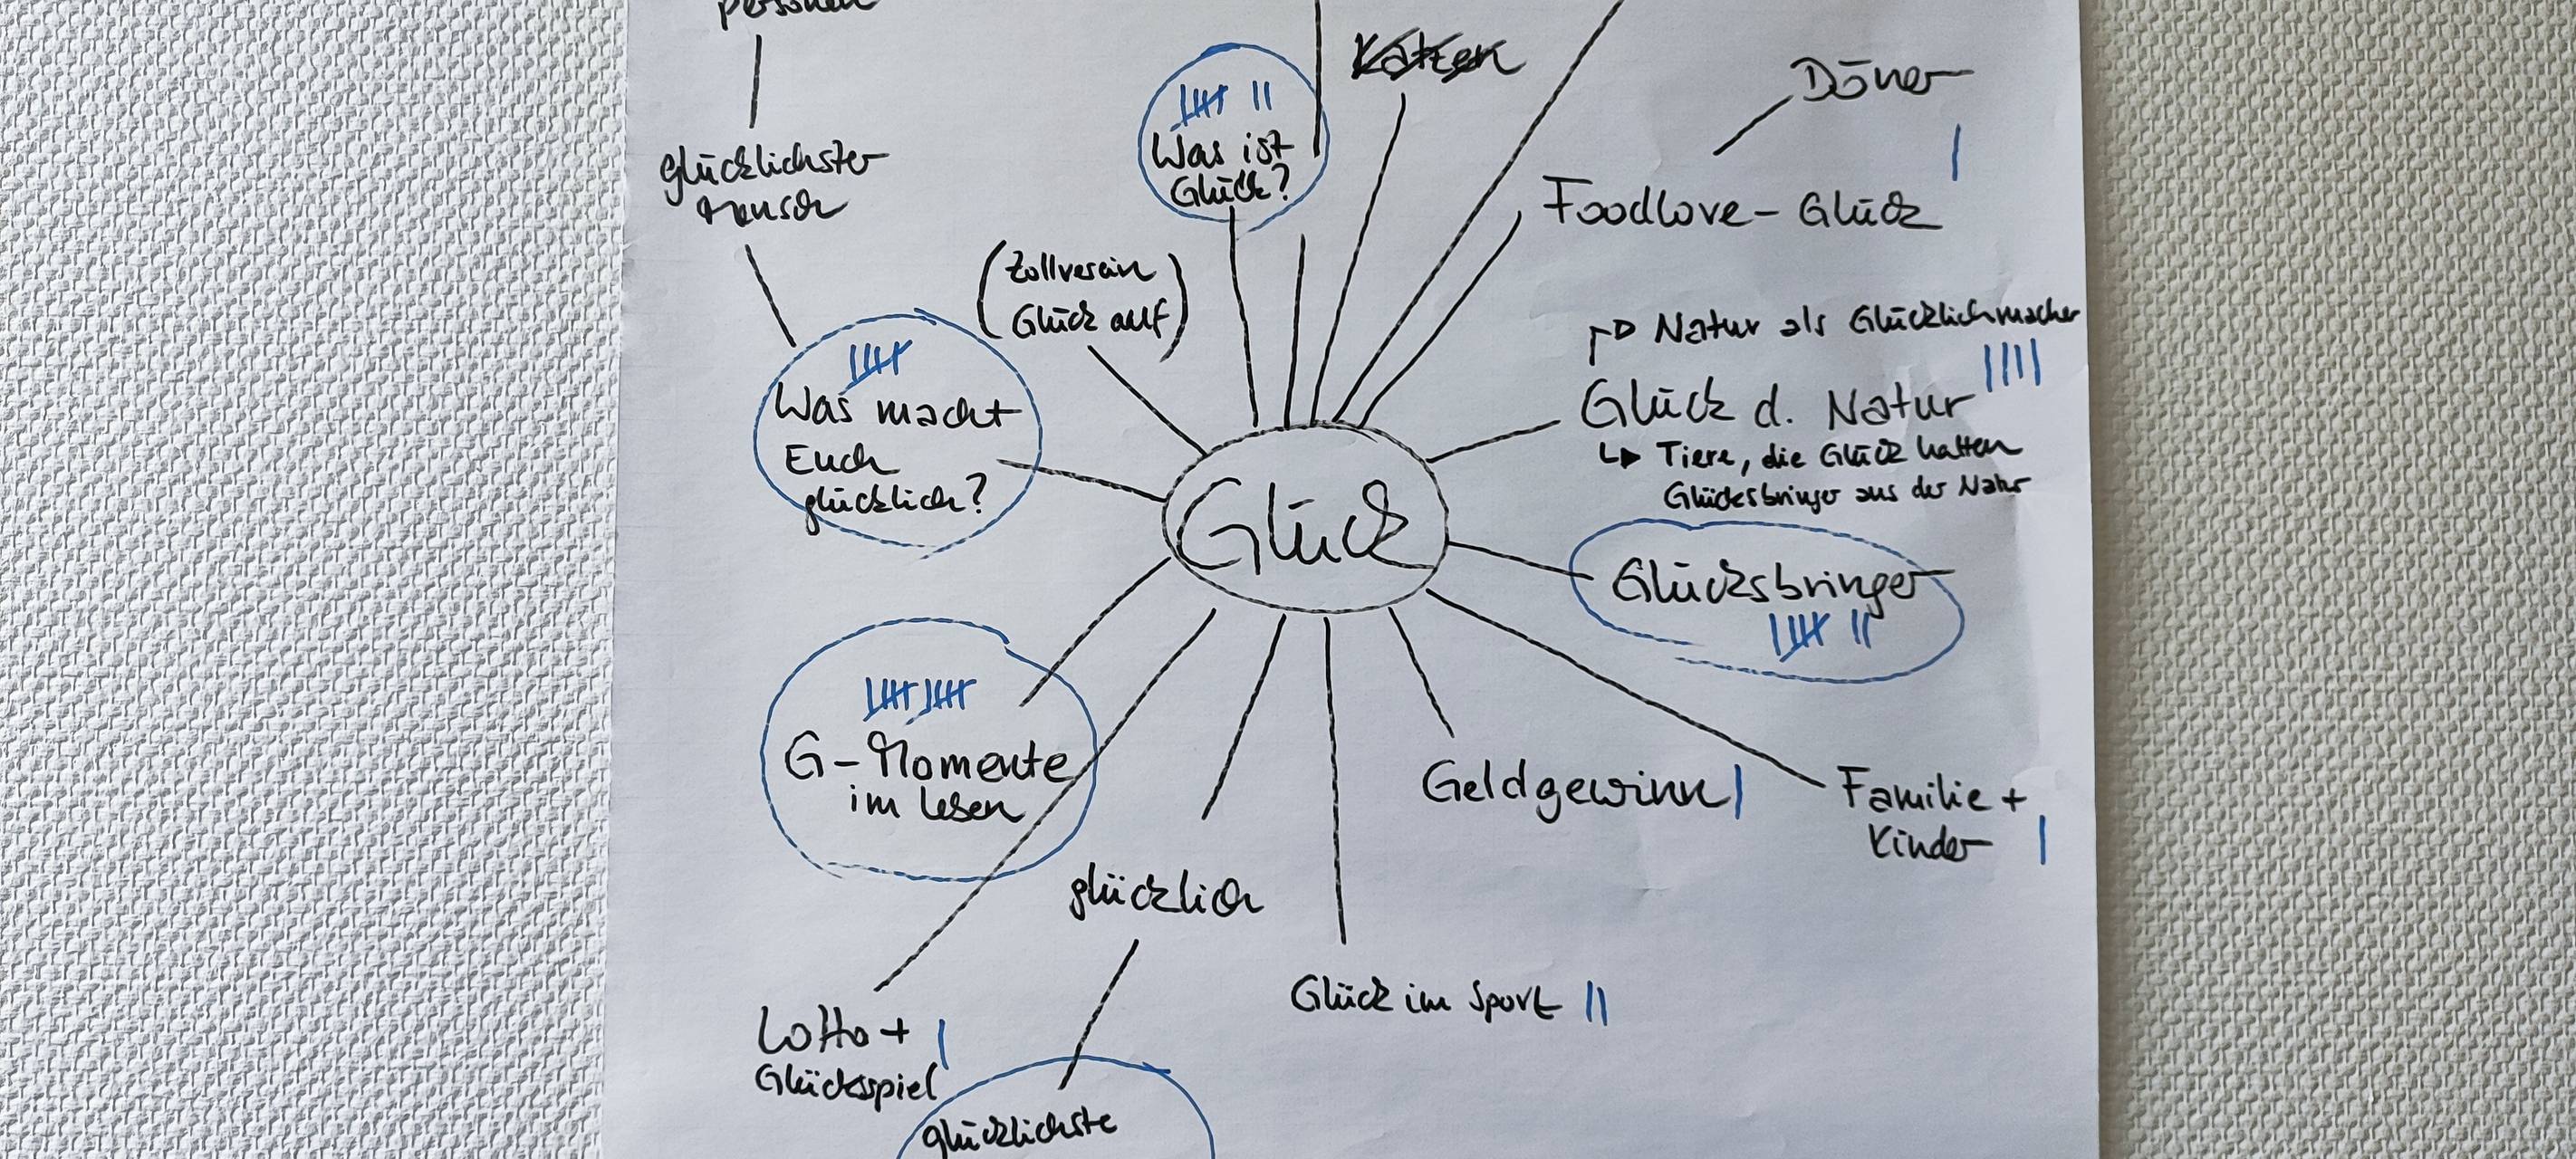 personen
Katzen
Döner
Was ist
Glück?
glücklichster
Mensch
Foodlove - Glück
(Zollverein
Glück auf)
Natur als Glücklichmacher
Was macht
Euch
glücklich?
Glück d. Natur
Tiere, die Glück hatten
Glücksbringer aus der Natur
Glück
Glücksbringer
G-Momente
im Leben
Geldgewinn
Familie +
Kinder
glücklich
Glück im Sport
Lotto +
Glücksspiel
glücklichste